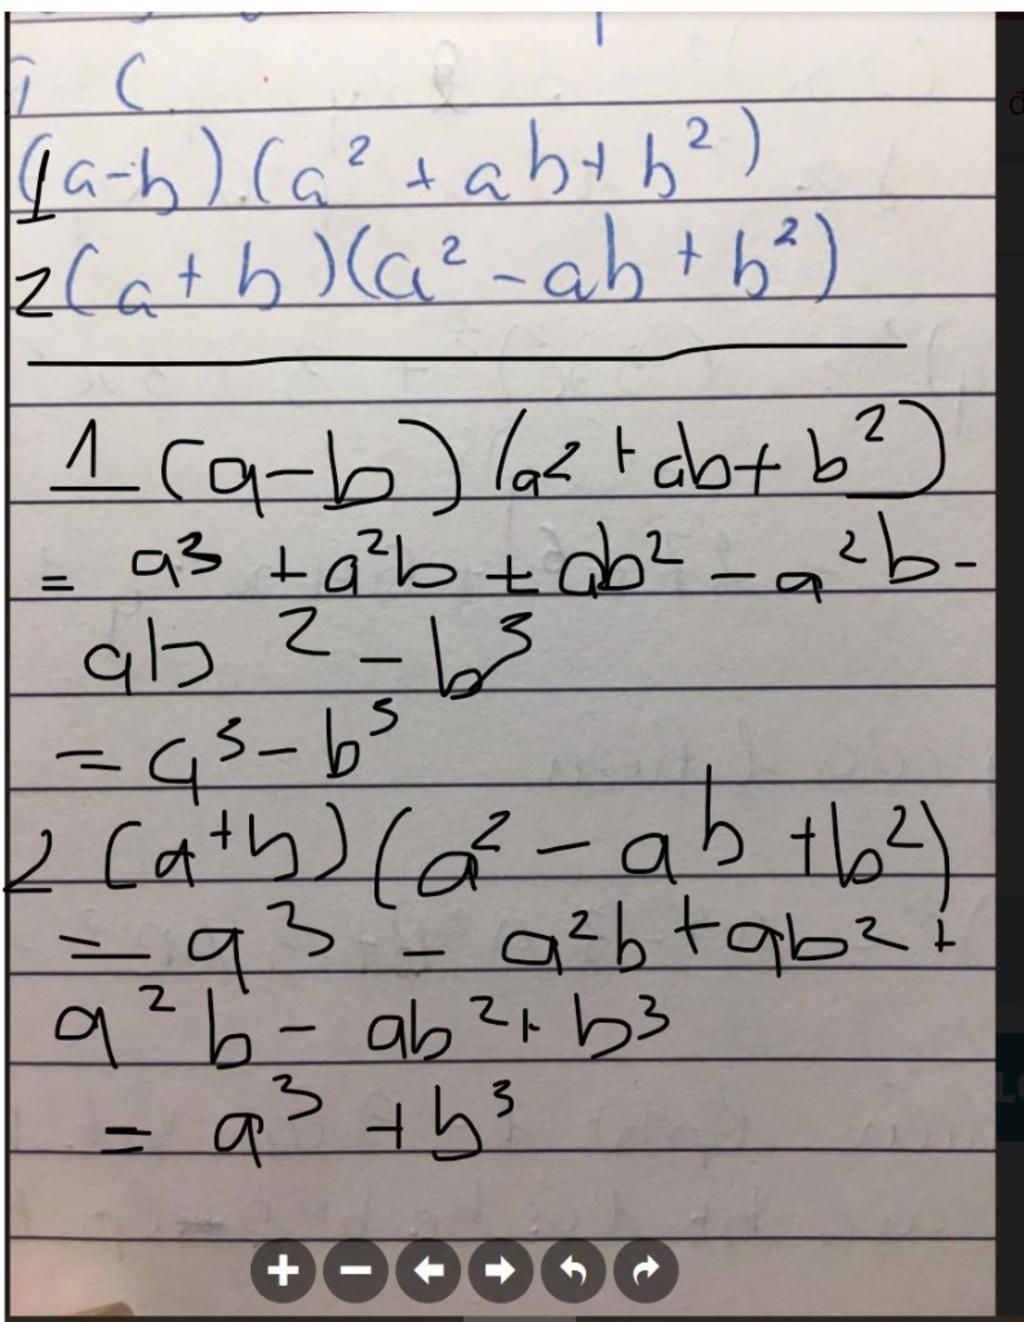 (
1(a-b)(a² + ab + b²)
2(a + b)(a² - ab + b²)
1 (a-b)(a² + ab + b²)
= a³ + a²b + ab² - a²b -
ab² - b³
= a³ - b³
2 (a+b)(a² - ab + b²)
= a³ - a²b + ab² +
a²b - ab² + b³
= a³ + b³